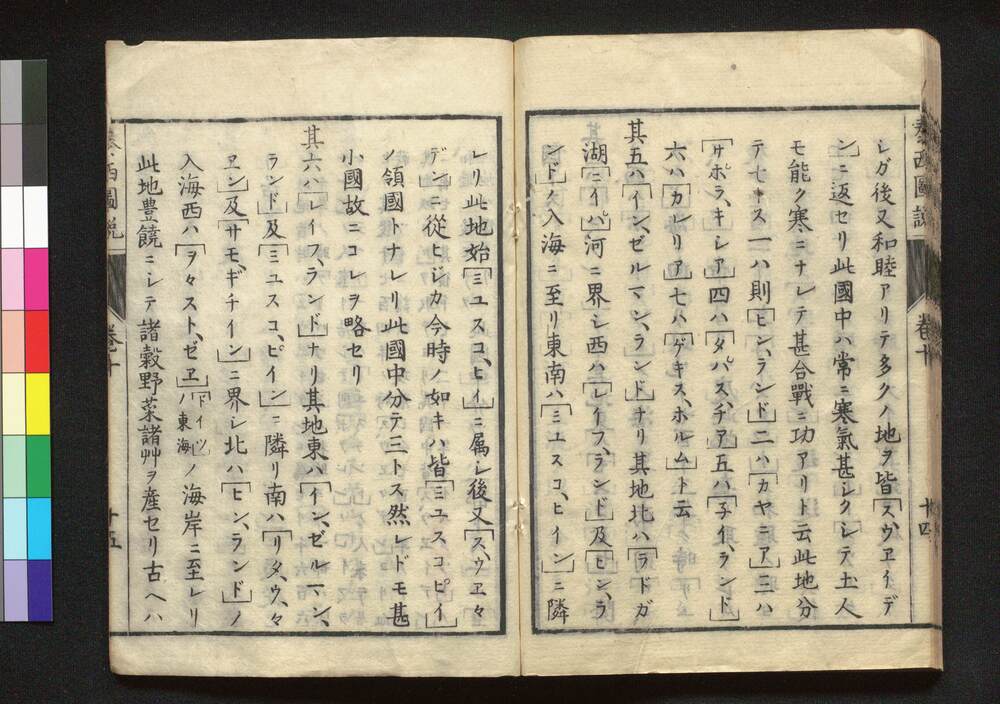 シガ後又和睦アリテ多クノ地ヲ皆「スウヱイデ
ン」ニ返セリ此國中ハ常ニ寒氣甚シクシテ土人
モ能ク寒ニナレテ甚合戰ニ功アリト云此地分
テ七トス一ハ則「ヒン、ランド」二ハ「カヤニア」三ハ
「サポラ、キシア」四ハ「タパスチア」五ハ「子イ、ランド」
六ハ「カレリア」七ハ「ゲキス、ホルム」ト云
其五ハ「イン、ゼルマン、ランド」ナリ其地北ハ「ラドガ
湖」ニイパ「河ニ界シ西ハ「レイフ、ランド」及「ヒン、ラ
ンド」ノ入海ニ至リ東南ハ「ミユスコ、ヒイン」ニ隣
卷十
十四
レリ此地始「ミユスコ、ヒイ」ニ属シ後又「スウヱ々
デン」ニ從ヒシカ今時ノ如キハ皆「ミユスコピイ」
ノ領國トナレリ此國中分テ三トス然レドモ甚
小國故ニコレヲ略セリ
其六ハ「レイフ、ランド」ナリ其地東ハ「イン、ゼルマン、
ランド」及「ミユスコ、ピイン」ニ隣リ南ハ「リタウ、々
ヱン」及「サモギチイン」ニ界シ北ハ「ヒン、ランド」ノ
入海西ハ「ヲヽスト、ゼヱ」「ドイツ」ノ東海ノ海岸ニ至レリ
此地豊饒ニシテ諸穀野菜諸艸ヲ産セリ古ヘハ
泰西圖説
卷十
十五